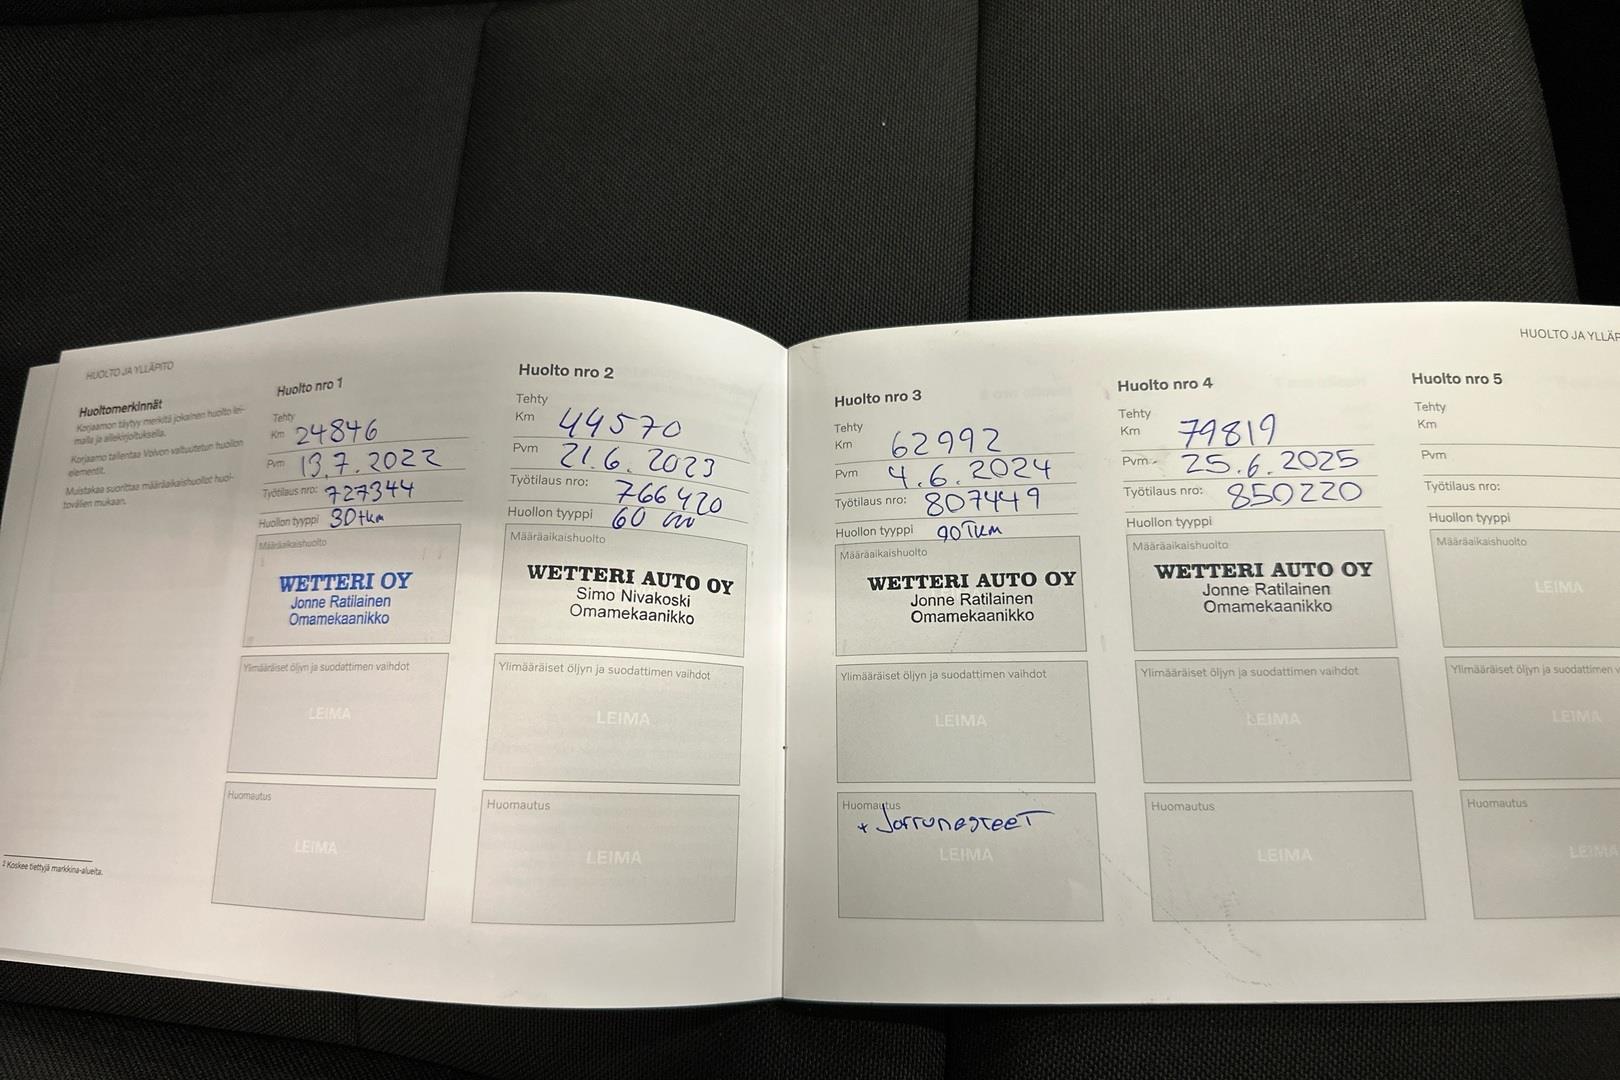 HUOLTO JA YLLÄPITO
Huoltomerkinnät
Korjaamon täytyy merkitä jokainen huolto lei-
malla ja allekirjoituksella.
Korjaamo tallentaa Volvon valtuutetun huollon
elementit.
Muistakaa suorittaa määräaikaishuollot huol-
tovälien mukaan.
2 Koskee tiettyjä markkina-alueita.
Huolto nro 1
Tehty
Km 24846
Pvm 13.7.2022
Työtilaus nro: 727344
Huollon tyyppi 30tkm
Määräaikaishuolto
WETTERI OY
Jonne Ratilainen
Omamekaanikko
Ylimääräiset öljyn ja suodattimen vaihdot
LEIMA
Huomautus
LEIMA
Huolto nro 2
Tehty
Km 44570
Pvm 21.6.2023
Työtilaus nro: 766420
Huollon tyyppi 60
Määräaikaishuolto
WETTERI AUTO OY
Simo Nivakoski
Omamekaanikko
Ylimääräiset öljyn ja suodattimen vaihdot
LEIMA
Huomautus
LEIMA
Huolto nro 3
Tehty
Km 62992
Pvm 4.6.2024
Työtilaus nro: 807449
Huollon tyyppi 90TKM
Määräaikaishuolto
WETTERI AUTO OY
Jonne Ratilainen
Omamekaanikko
Ylimääräiset öljyn ja suodattimen vaihdot
LEIMA
Huomautus
+ Jarrunesteet
LEIMA
HUOLTO JA YLLÄP
Huolto nro 4
Tehty
Km 79819
Pvm 25.6.2025
Työtilaus nro: 850220
Huollon tyyppi
Määräaikaishuolto
WETTERI AUTO OY
Jonne Ratilainen
Omamekaanikko
Ylimääräiset öljyn ja suodattimen vaihdot
LEIMA
Huomautus
LEIMA
Huolto nro 5
Tehty
Km
Pvm
Työtilaus nro:
Huollon tyyppi
Määräaikaishuolto
LEIMA
Ylimääräiset öljyn ja suodattimen v
LEIMA
Huomautus
LEIMA